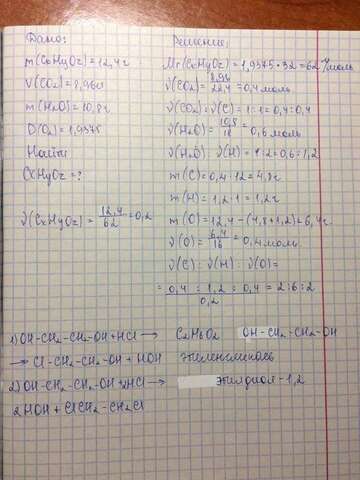 Дано:
m(CxHyOz)=12,4г
V(CO₂)=8,96л
m(H₂O)=10,8г
D(O₂)=1,9375
Найти
CxHyOz=?
ν(CxHyOz)=12,4/62=0,2
Решение:
Mr(CxHyOz)=1,9375·32=62 г/моль
ν(CO₂)=8,96/22,4=0,4моль
ν(CO₂):ν(C)=1:1=0,4:0,4
ν(H₂O)=10,8/18=0,6моль
ν(H₂O):ν(H)=1:2=0,6:1,2
m(C)=0,4·12=4,8г
m(H)=1,2·1=1,2г
m(O)=12,4-(4,8+1,2)=6,4г
ν(O)=6,4/16=0,4моль
ν(C):ν(H):ν(O)=
=0,4:1,2:0,4/0,2=2:6:2
1)OH-CH₂-CH₂-OH+HCl→
→Cl-CH₂-CH₂-OH+HOH
2)OH-CH₂-CH₂-OH+2HCl→
2HOH+ClCH₂-CH₂Cl
C₂H₆O₂ OH-CH₂-CH₂-OH
этиленгликоль
этандиол-1,2